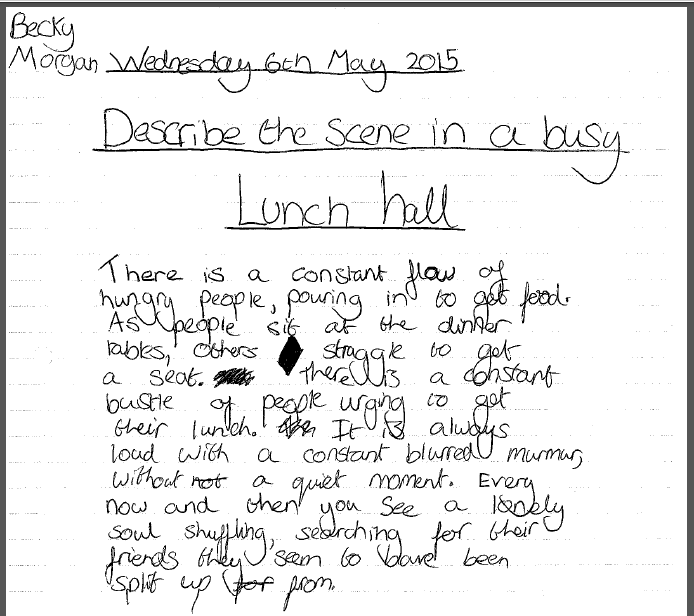 Becky
Morgan Wednesday 6th May 2015
Describe the scene in a busy
Lunch hall
There is a constant flow of
hungry people, pouring in to get food.
As people sit at the dinner
tables, others straggle to get
a seat. There is a constant
bustle of people urging to get
their lunch. It is always
loud with a constant blurred murmur,
without not a quiet moment. Every
now and then you see a lonely
soul shuffling, searching for their
friends they seem to have been
split up for from.